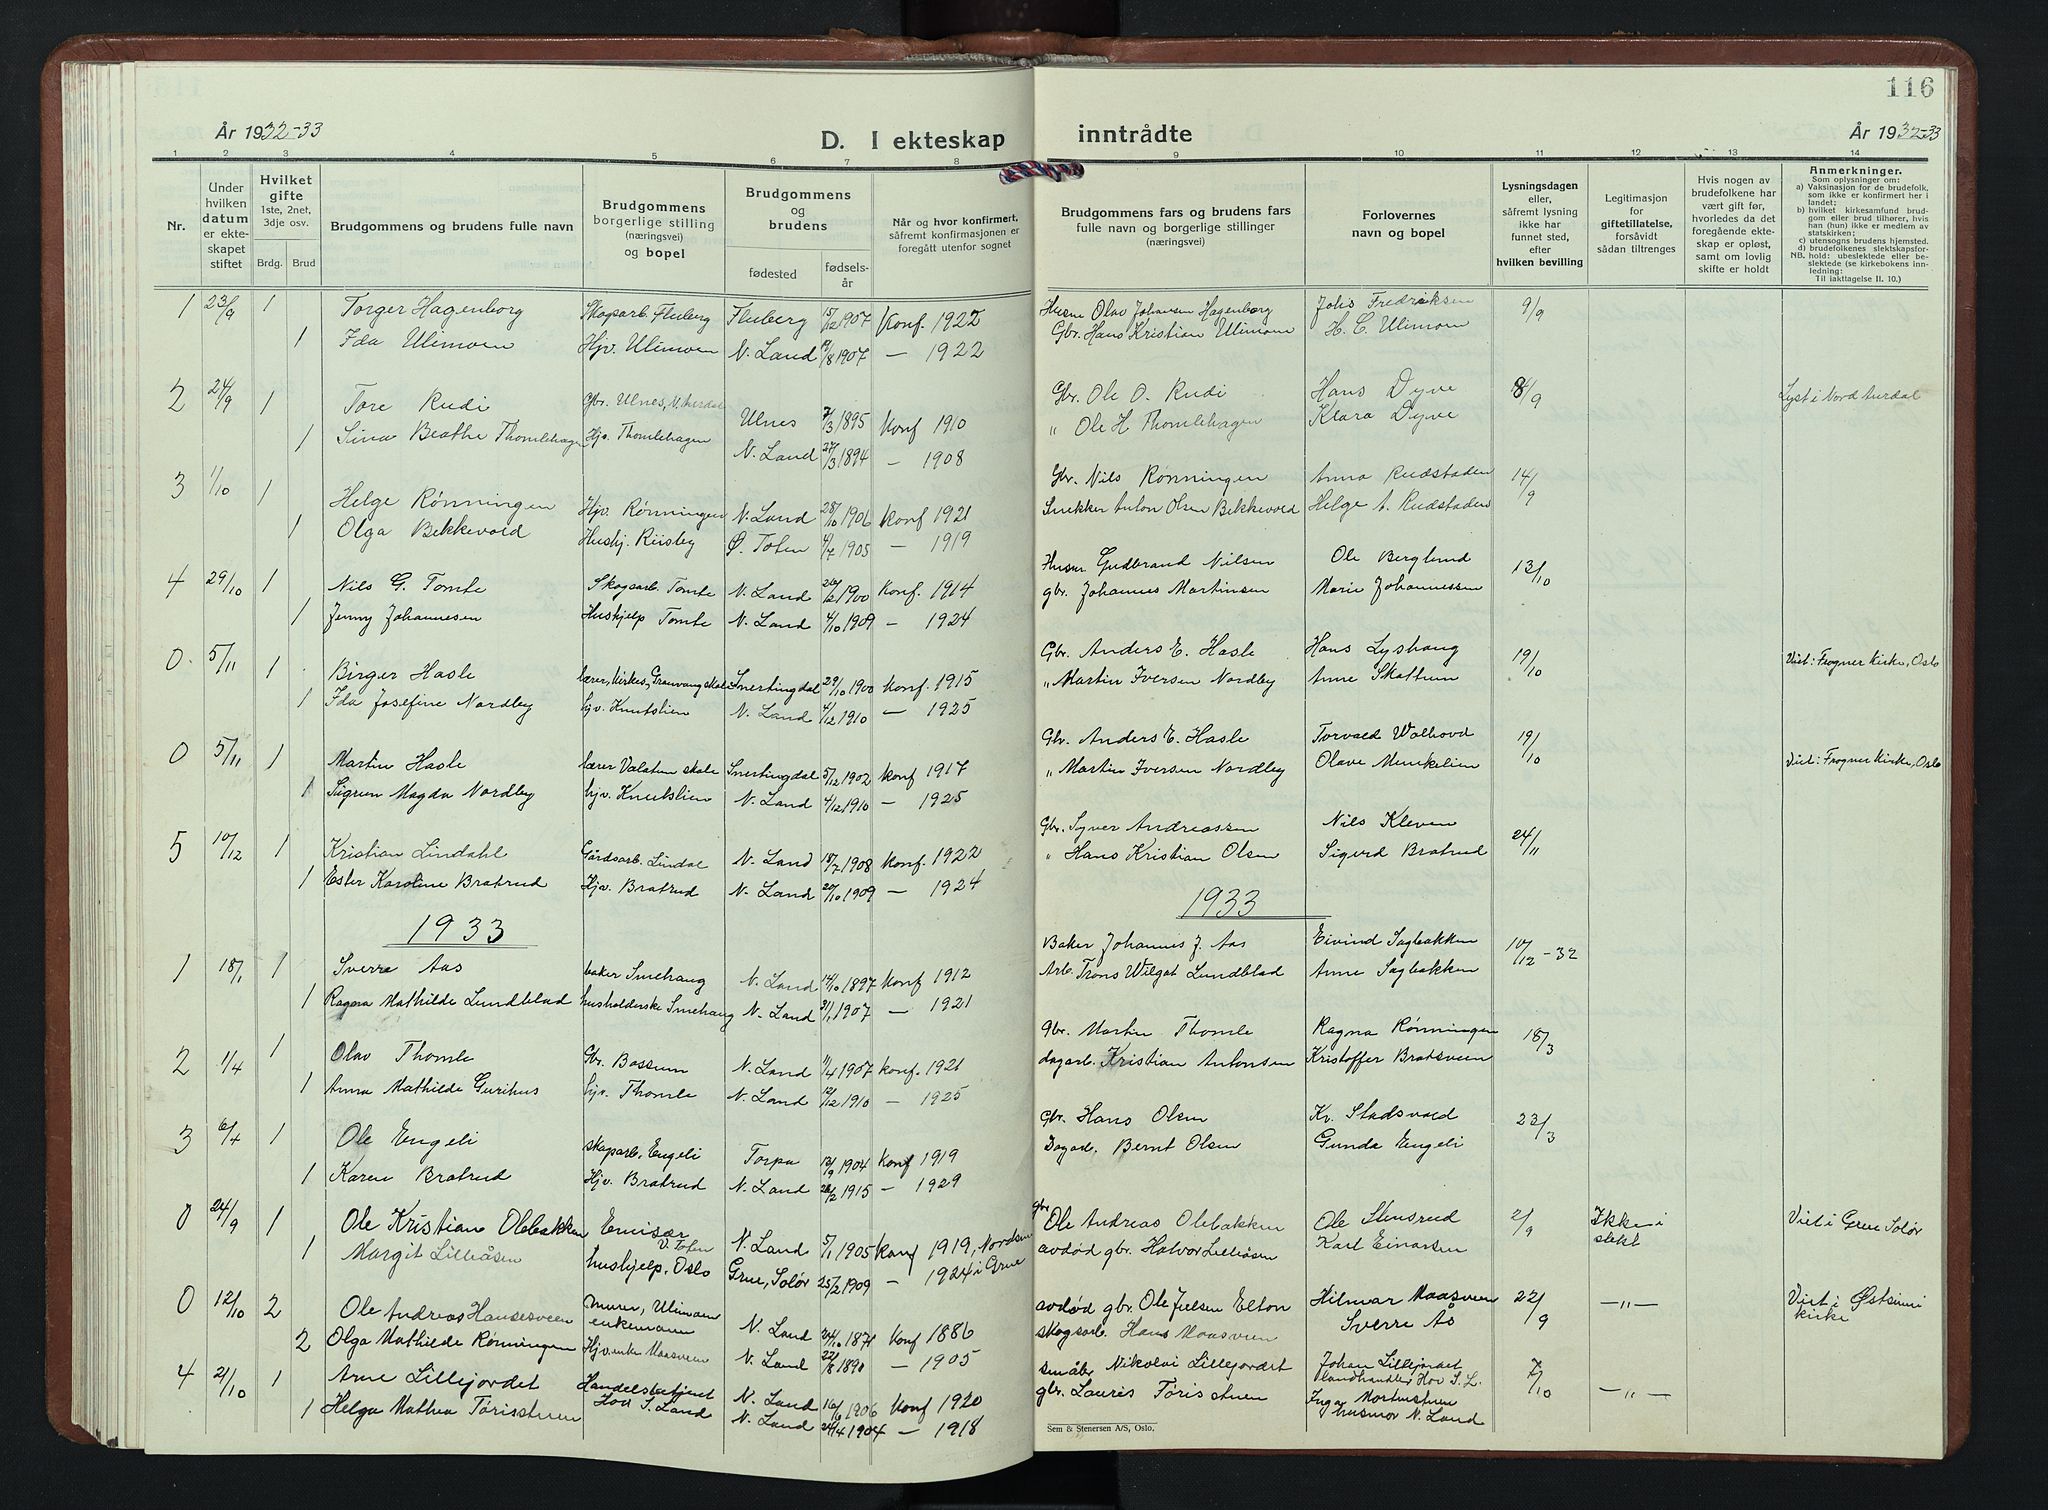 116
År 1932-33
D. I ekteskap inntrådte
År 1932-33
1 2 3 4 5 6 7 8 9 10 11 12 13 14
Nr.
Under hvilken datum er ekteskapet stiftet
Hvilket gifte
1ste, 2net, 3dje osv.
Brdg. Brud
Brudgommens og brudens fulle navn
Brudgommens borgerlige stilling (næringsvei) og bopel
Brudgommens og brudens
fødested fødselsår
Når og hvor konfirmert, såfremt konfirmasjonen er foregått utenfor sognet
Brudgommens fars og brudens fars fulle navn og borgerlige stillinger (næringsvei)
Forlovernes navn og bopel
Lysningsdagen eller, såfremt lysning ikke har funnet sted, efter hvilken bevilling
Legitimasjon for giftetillatelse, forsåvidt sådan tiltrenges
Hvis nogen av brudefolkene har vært gift før, hvorledes da det foregående ekteskap er opløst, samt om lovlig skifte er holdt
Anmerkninger.
Som oplysninger om:
a) Vaksinasjon for de brudefolk, som ikke er konfirmert her i landet;
b) hvilket kirkesamfund brudgom eller brud tilhører, hvis han (hun) ikke er medlem av statskirken;
c) utensogns brudens hjemsted.
d) brudefolkenes slektskapsforhold: ubeslektede eller beslektede (se kirkebokens innledning:
NB. Til iakttagelse II. 10.)
1 23/9 1 Torger Hagenborg Skogsarb. Fluberg Fluberg 15/12 1907 Konf. 1922 Husm Olav Johansen Hagenborg Johs Fredriksen 9/9
1 Ida Ulimoen Hjv. Ulimoen N. Land 19/8 1907 — 1922 Gbr. Hans Kristian Ulimoen H. C. Ulimoen
2 24/9 1 Tore Rudi Gbr. Ulnes, N. Aurdal Ulnes 7/3 1895 Konf 1910 Gbr. Ole O. Rudi Hans Dyve 8/9 Lyst i Nord Aurdal
1 Sina Beathe Thomlehagen Hjv. Thomlehagen N. Land 27/3 1894 — 1908 " Ole H. Thomlehagen Klara Dyve
3 1/10 1 Helge Rønningen Hjv. Rønningen N. Land 28/10 1906 Konf 1921 Gbr. Nils Rønningen Anna Rudstaden 14/9
1 Olga Bekkevold Hushj. Riisby Ø. Toten 1905 — 1919 Snekker Anton Olsen Bekkevold Helge A. Rudstaden
4 29/10 1 Nils G. Tomte Skogsarb. Tomte N. Land 26/2 1900 Konf. 1914 Husm Gudbrand Nilsen Ole Berglund 13/10
1 Jenny Johannesen Hushjelp Tomte N. Land 4/10 1909 — 1924 gbr. Johannes Martinsen Marie Johannessen
0. 5/11 1 Birger Hasle lærer, Kirkes, Grauvang skole Snertingdal 29/10 1900 Konf. 1915 Gbr. Anders E. Hasle Hans Lyshaug 19/10 Viet: Frogner Kirke, Oslo
1 Ida Josefine Nordby hjv. Knutslien N. Land 4/12 1910 — 1925 " Martin Iversen Nordby Anne Skattum
0 5/11 1 Martin Hasle lærer Valatun skole Snertingdal 5/12 1902 Konf 1917 Gbr. Anders E. Hasle Torvald Wolhovd 19/10 Viet: Frogner Kirke, Oslo
1 Sigrun Magda Nordby hjv. Knutslien N. Land 4/12 1910 — 1925 " Martin Iversen Nordby Olave Menkelien
5 10/12 1 Kristian Lindahl Gårdsarb. Lindal N. Land 18/7 1908 Konf. 1922 Gbr. Syver Andreassen Nils Kleven 24/11
1 Ester Karoline Bratrud Hjv. Bratrud N. Land 20/10 1909 — 1924 " Hans Kristian Olsen Sigurd Bratrud
1933 1933
1 18/1 1 Sverre Aas baker Smehaug N. Land 14/10 1897 Konf 1912 Baker Johannes J. Aas Eivind Sagbakken 10/12-32
1 Ragna Mathilde Lundblad husholderske Smehaug N. Land 31/1 1907 — 1921 Arb. Frons Wilgot Lundblad Anne Sagbakken
2 1/4 1 Olav Thomle Gbr. Bossum N. Land 11/4 1907 Konf. 1921 Gbr. Martin Thomle Ragna Rønningen 18/3
1 Anna Mathilde Gurihus hjv. Thomle N. Land 12/12 1910 — 1925 dagarb. Kristian Antonsen Kristoffer Bratsveen
3 6/4 1 Ole Engeli skogsarb. Engeli Torpa 13/9 1904 Konf 1919 Gbr. Hans Olsen Kr. Stadsvold 23/3
1 Karen Bratrud Hjv. Bratrud N. Land 1915 — 1929 Dagarb. Bernt Olsen Gunda Engeli
0 24/9 1 Ole Kristian Olebakken Emisær V. Toten N. Land 5/1 1905 Konf 1919, Nordsin gbr Ole Andreas Olebakken Ole Stensrud 2/9 Ikke i slekt Viet i Grue Solør
1 Margit Lilleåsen hushjelp, Oslo Grue, Solør 25/2 1909 — 1924 i Grue avdød gbr. Halvor Lilleåsen Karl Einarsen
0 12/10 2 Ole Andreas Hansesveen murer, Ulimoen enkemann N. Land 24/10 1871 Konf 1886 avdød gbr. Ole Jensen Elton Hilmar Maasveen 22/9 —"— Viet i Østsinni kirke
2 Olga Mathilde Rønningen Hjv. enke Maasveen N. Land 22/8 1890 — 1905 skogsarb. Hans Maasveen Sverre Ås
4 21/10 1 Arne Lillejordet Handelsbetjent Hov S. Land N. Land 16/6 1906 Konf 1920 småbr Nikolai Lillejordet Johan Lillejordet landhandler Hov S. L. 7/10 —"—
1 Helga Mathea Tørisstuen N. Land 24/4 1904 — 1918 gbr. Lauris Tørisstuen Inga Mortenstuen husmor N. Land
Sem & Stenersen A/S, Oslo.